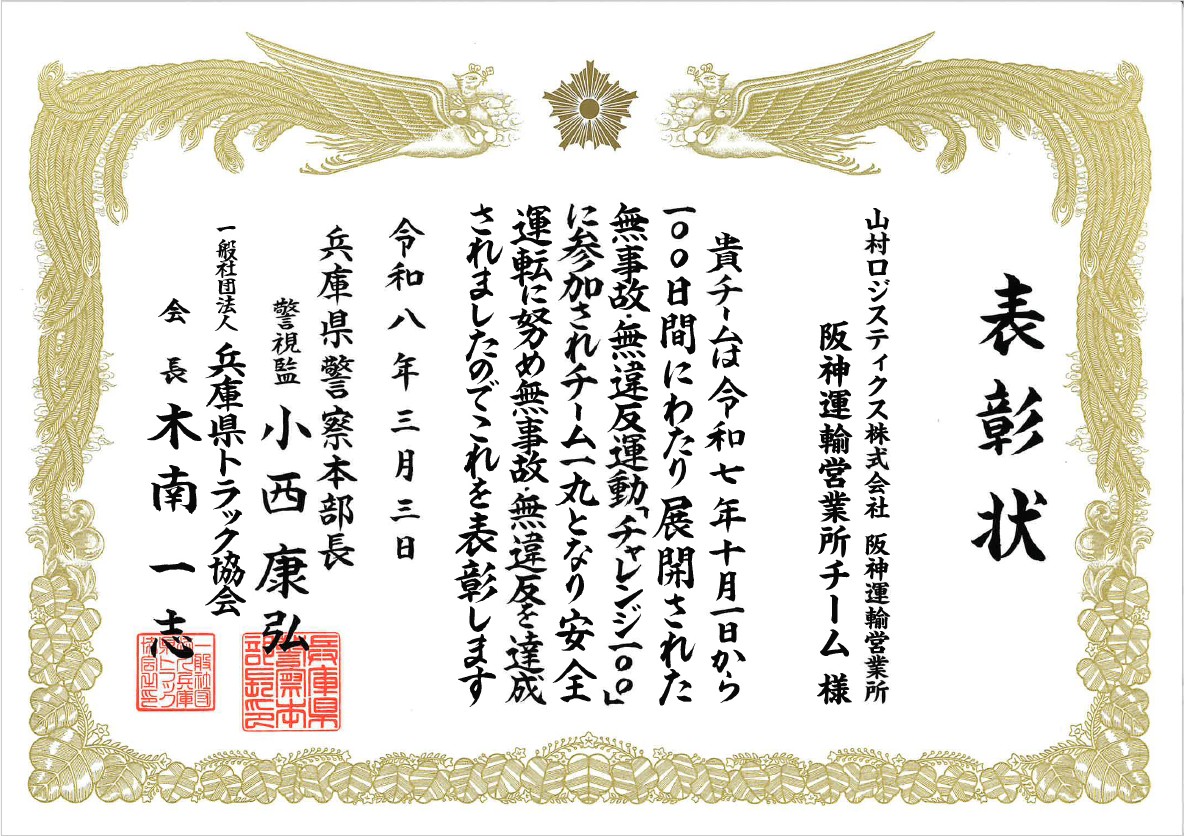 表彰状
山村ロジスティクス株式会社 阪神運輸営業所
阪神運輸営業所チーム 様
貴チームは令和七年十月一日から
一〇〇日間にわたり展開された
無事故・無違反運動「チャレンジ一〇〇」
に参加されチーム一丸となり安全
運転に努め無事故・無違反を達成
されましたのでこれを表彰します
令和八年三月三日
兵庫県警察本部長
警視監 小西康弘
一般社団法人 兵庫県トラック協会
会長 木南一志
兵庫県
警察本
部長印